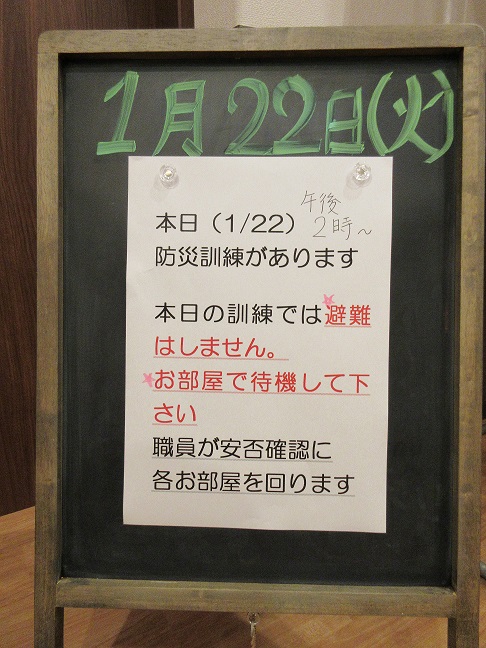 1月22日(火)
本日（1/22）午後2時～
防災訓練があります
本日の訓練では避難
はしません。
お部屋で待機して下
さい
職員が安否確認に
各お部屋を回ります